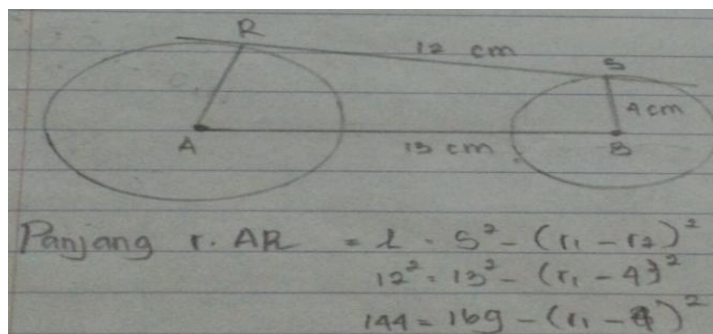 R
12 cm
S
4 cm
A
13 cm
B
Panjang r. AR = l = S² - (r₁ - r₂)²
12² = 13² - (r₁ - 4)²
144 = 169 - (r₁ - 4)²